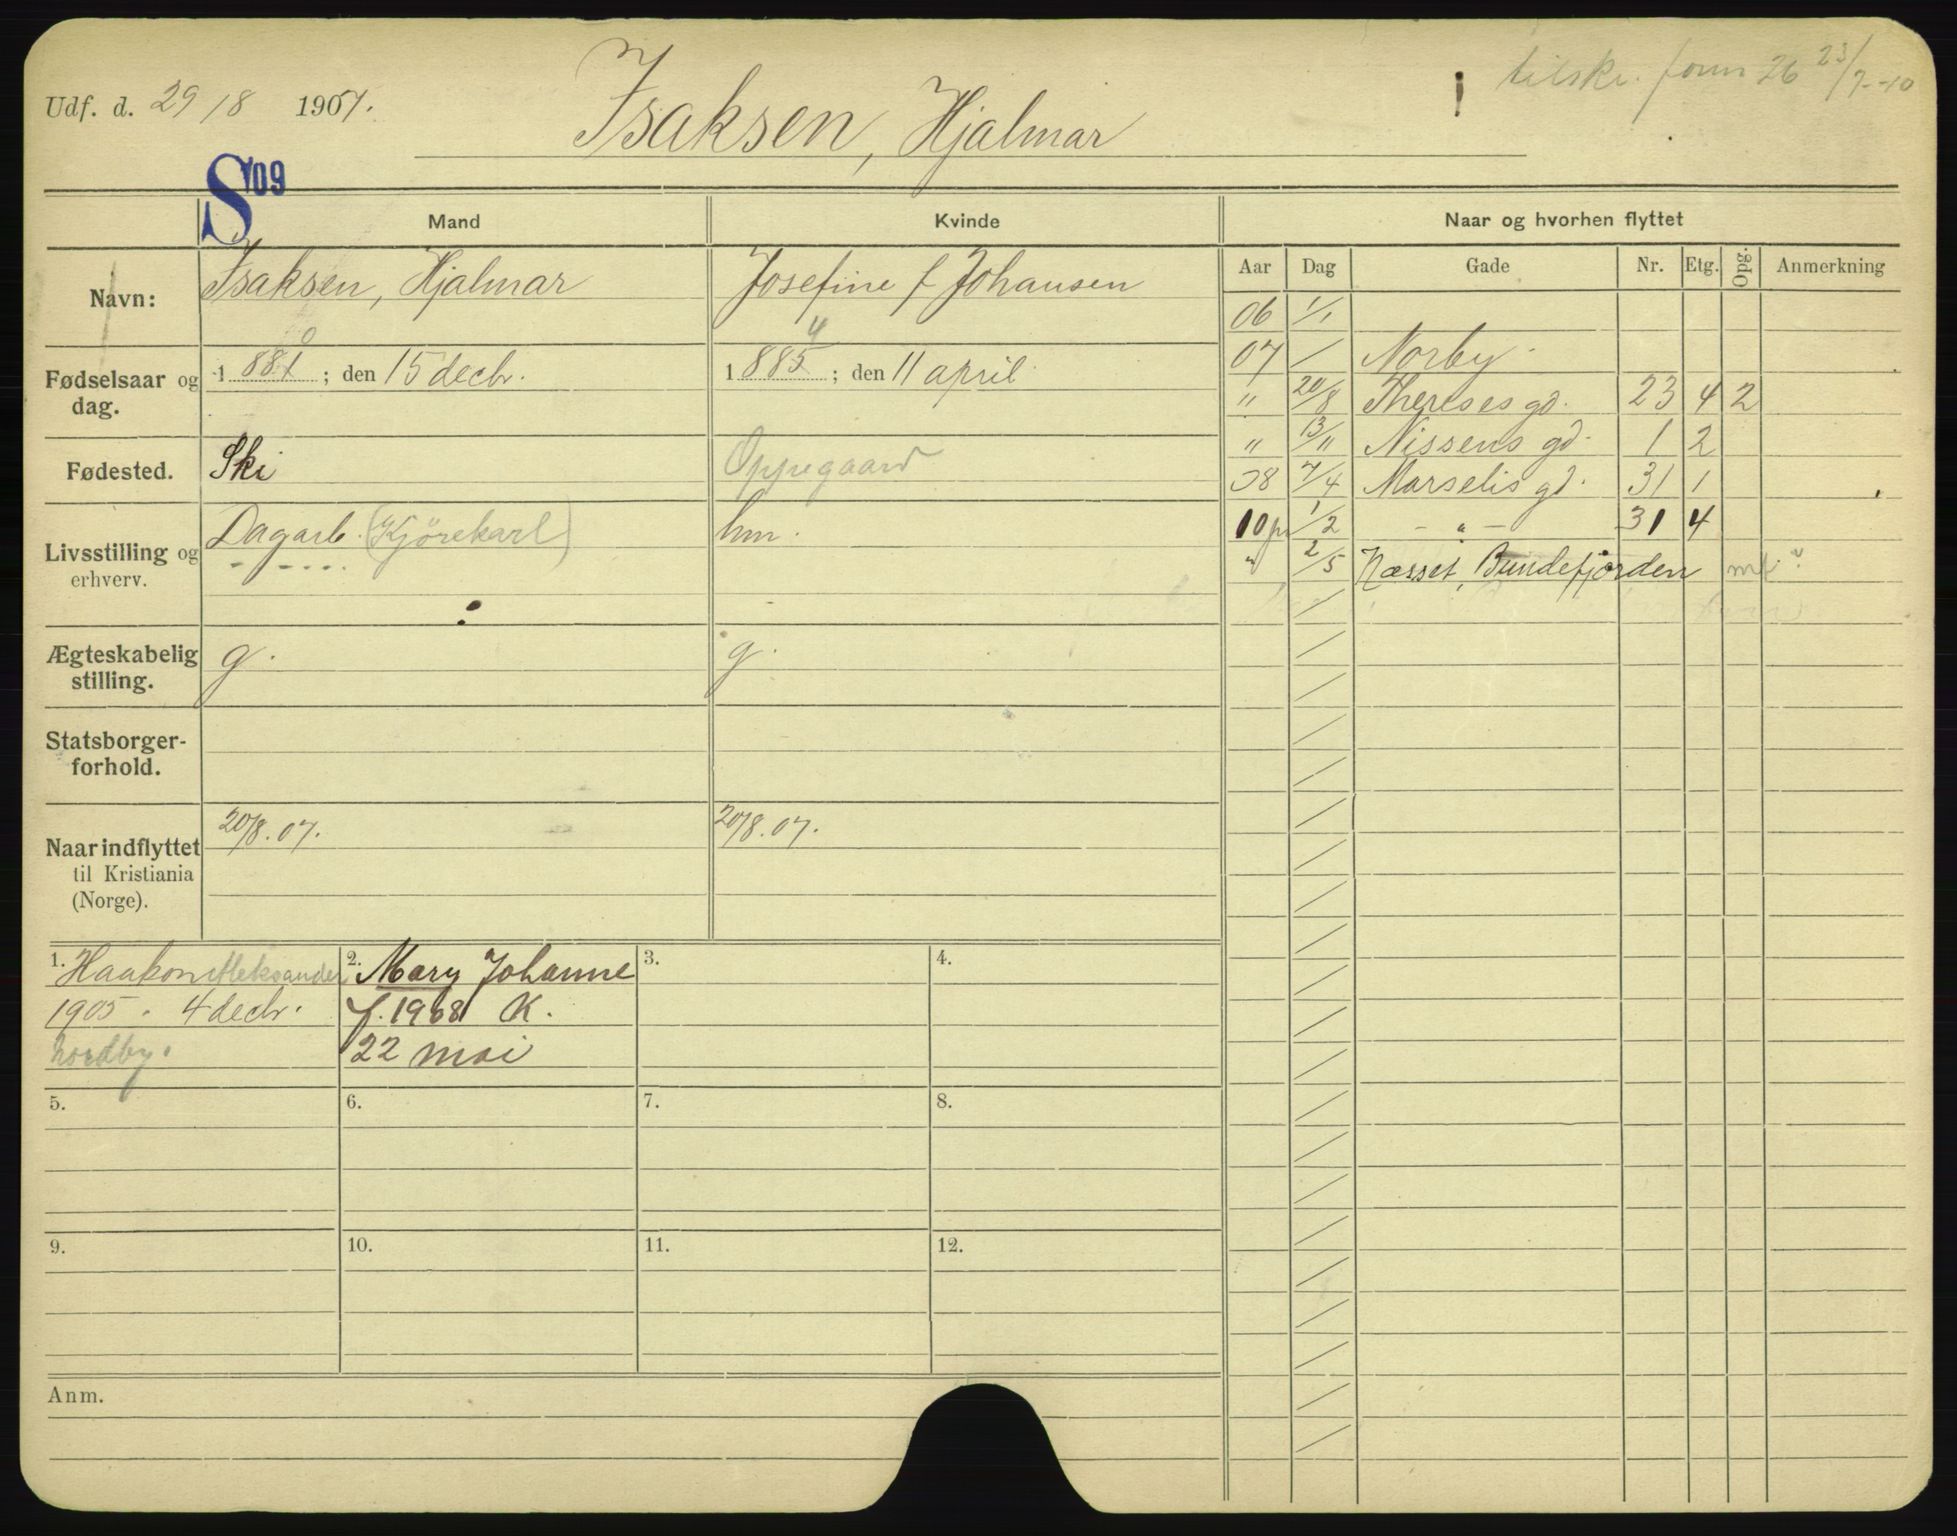 Udf. d. 29/8 1907.
Isaksen, Hjalmar
tilskr. form 26 23/7-10
S 09
Mand
Kvinde
Naar og hvorhen flyttet
Navn: Isaksen, Hjalmar
Josefine f Johansen
Fødselsaar og dag. 1881 0 ; den 15 decbr.
1885 4 ; den 11 april
Fødested. Ski
Oppegaard
Livsstilling og erhverv. Dagarb. (Kjörekarl)
hm.
Ægteskabelig stilling. g.
g.
Statsborgerforhold.
Naar indflyttet til Kristiania (Norge). 20/8.07.
20/8.07.
Aar Dag Gade Nr. Etg. Opg. Anmerkning
06 1/1
07 / Norby
" 20/8 Thereses gd. 23 4 2
" 13/11 Nissens gd. 1 2
08 7/4 Marselis gd. 31 1
10 pr 1/2 - " - 31 4
" 2/5 Næsset, Bundefjorden
1. Haakon Aleksander
1905. 4 decbr.
Nordby.
2. Mary Johanne
f. 1908 K.
22 mai
3.
4.
5.
6.
7.
8.
9.
10.
11.
12.
Anm.